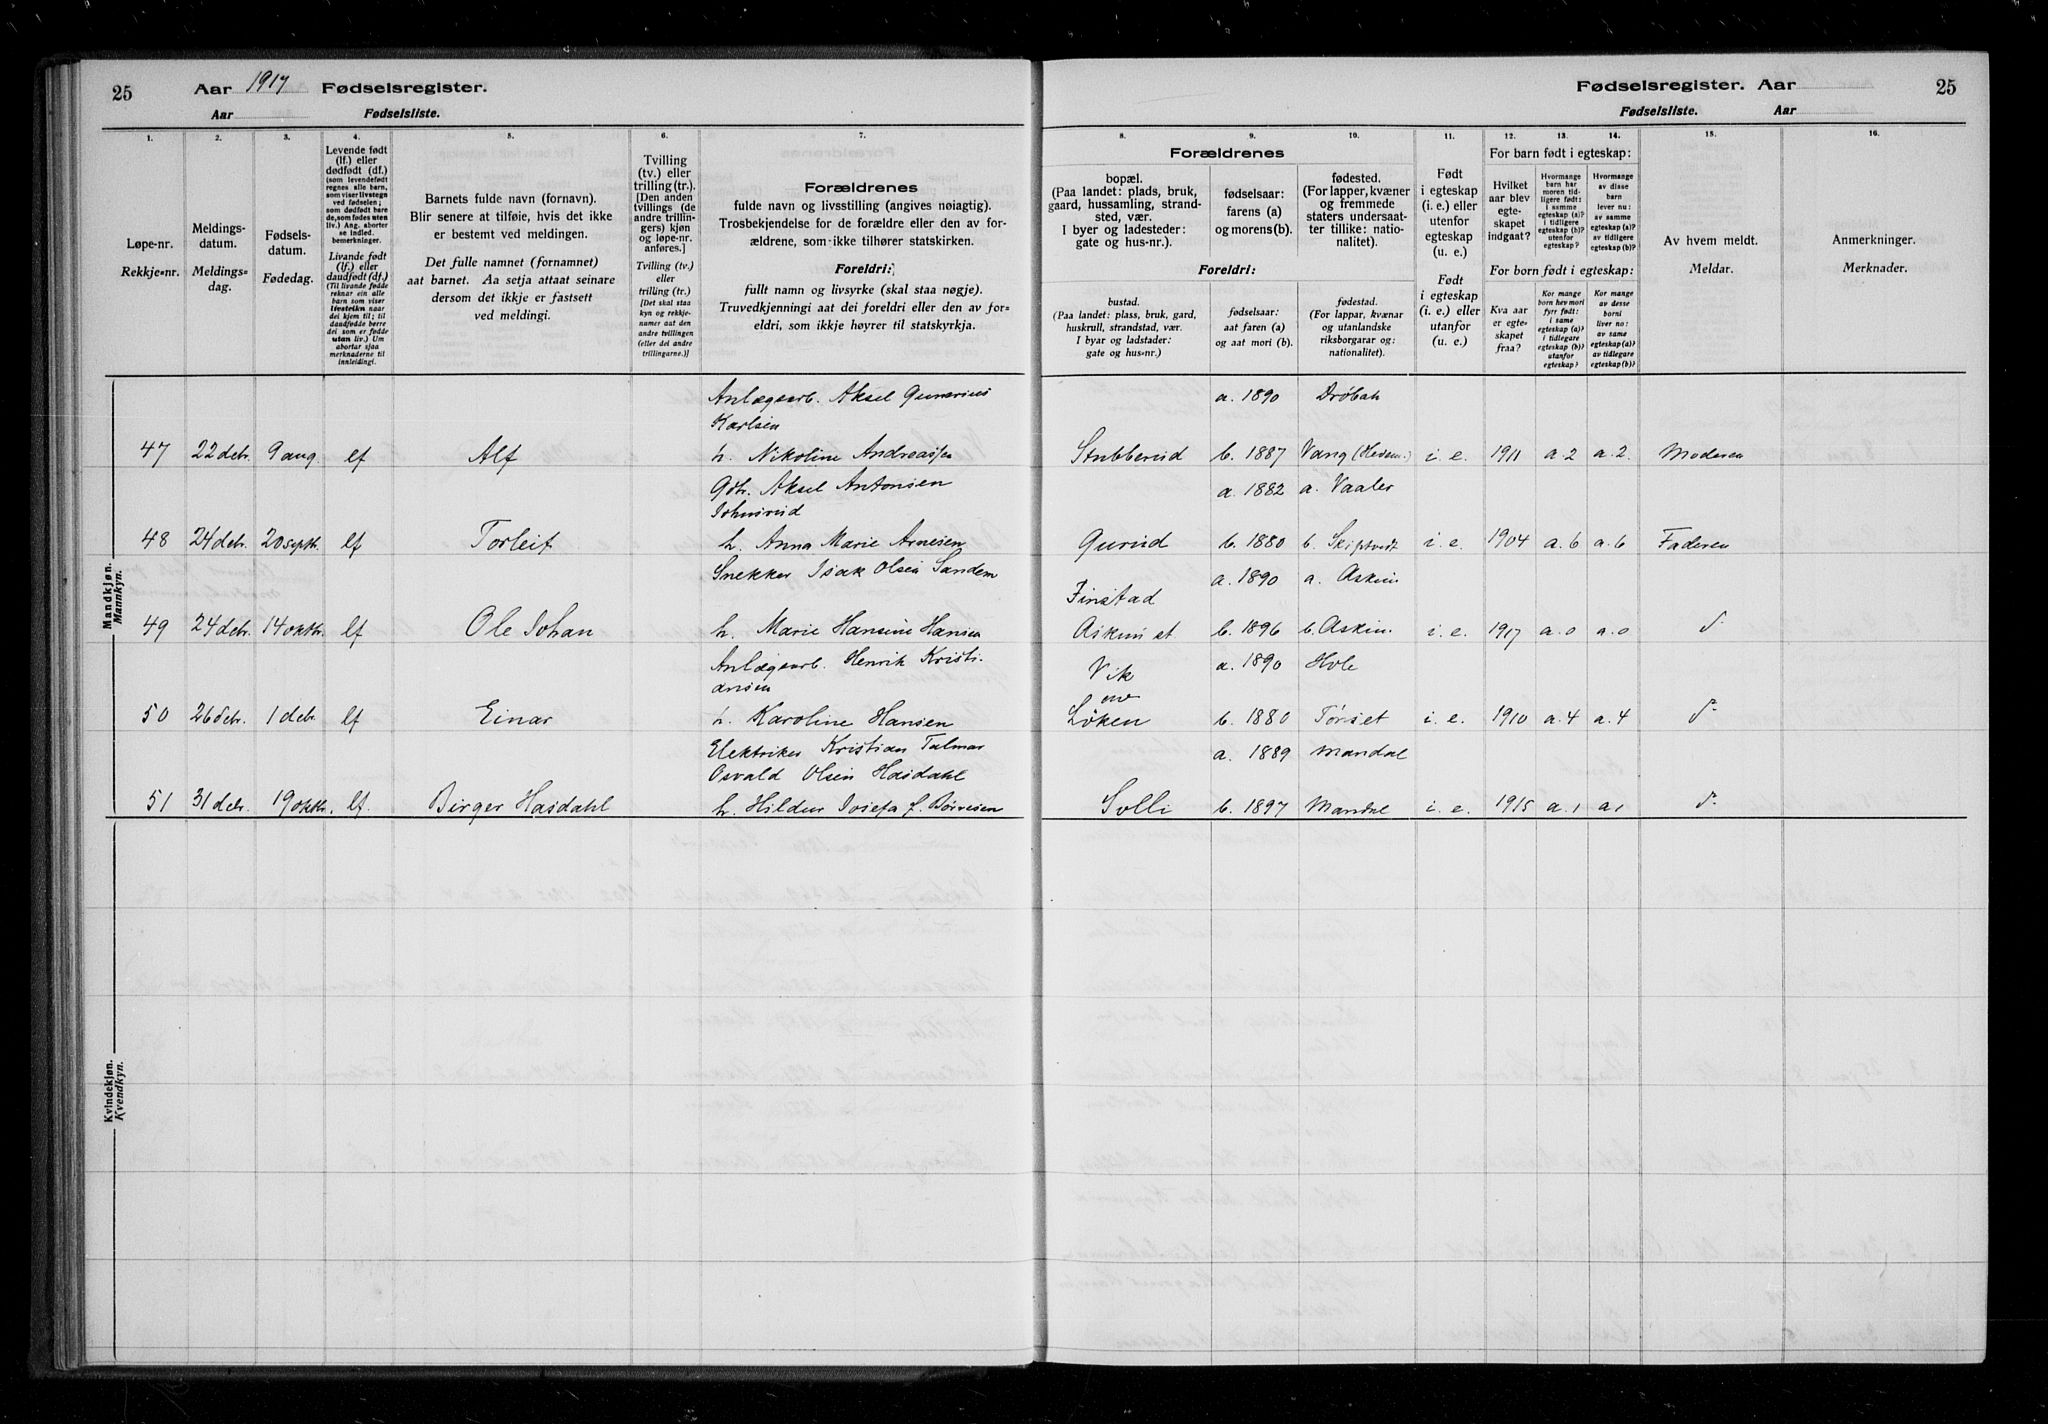 25 Aar 1917 Fødselsregister.
Aar Fødselsliste.
Fødselsregister. Aar 25
Fødselsliste. Aar
1. 2. 3. 4. 5. 6. 7.
Løpe-nr.
Rekkje=nr.
Meldings-
datum.
Meldings=
dag.
Fødsels-
datum.
Fødedag.
Levende født
(lf.) eller
dødfødt (df.)
(som levendefødt
regnes alle barn,
som viser livstegn
ved fødselen;
som dødfødt bare
de, som fødes uten
liv.) Ang. aborter
se indled.
bemerkninger.
Livande født
(lf.) eller
daudfødt (df.)
(Til livande fødde
reknar ein alle
barn som viser
livsteikn ved føding;
til daudfødde berre
dei som er fødde
utan liv.) Um
abortar sjaa
merknaderne til
innleidingi.
Barnets fulde navn (fornavn).
Blir senere at tilføie, hvis det ikke
er bestemt ved meldingen.
Det fulle namnet (fornamnet)
aat barnet. Aa setja attaat seinare
dersom det ikkje er fastsett
ved meldingi.
Tvilling
(tv.) eller
trilling (tr.).
[Den anden
tvillings (de
andre trillin-
gers) kjøn
og løpe-nr.
anføres.]
Tvilling (tv.)
eller
trilling (tr.)
[Det skal staa
kyn og rekkje-
numer aat den
andre tvillingen
(eller dei andre
trillingarne.)]
Forældrenes
fulde navn og livsstilling (angives nøiagtig).
Trosbekjendelse for de forældre eller den av for-
ældrene, som ikke tilhører statskirken.
Foreldri:
fullt namn og livsyrke (skal staa nøgje).
Truvedkjenningi aat dei foreldri eller den av for-
eldri, som ikkje høyrer til statskyrkja.
8. 9. 10. 11. 12. 13. 14. 15. 16.
Forældrenes
bopæl.
(Paa landet: plads, bruk,
gaard, hussamling, strand-
sted, vær.
I byer og ladesteder:
gate og hus-nr.).
fødselsaar:
farens (a)
og morens (b).
fødested.
(For lapper, kvæner
og fremmede
staters undersaat-
ter tillike: natio-
nalitet).
Foreldri:
bustad.
(Paa landet: plass, bruk, gard,
huskrull, strandstad, vær.
I byar og ladstader:
gate og hus=nr.)
fødselsaar:
aat faren (a)
og aat mori (b).
fødestad.
(For lappar, kvænar
og utanlandske
riksborgarar og:
nationalitet).
Født
i egteskap
(i. e.) eller
utenfor
egteskap
(u. e.)
Født
i egteskap
(i. e.) eller
utanfor
(u. e.)
For barn født i egteskap:
Hvilket
aar blev
egte-
skapet
indgaat?
Hvormange
barn har
moren tid-
ligere født:
i samme
egteskap (a)?
i tidligere
egteskap (b)?
utenfor
egteskap?
Hvormange
av disse
barn
lever nu:
av samme
egteskap (a)?
av tidligere
egteskap (b)?
For born født i egteskap:
Kva aar
er egte-
skapet
fraa?
Kor mange
born hev mori
fyrr født:
i same
egteskap (a)?
i tidlegare
egteskap (b)?
utanfor
egteskap?
Kor mange
av desse
borni
liver no:
av same
egteskap (a)?
av tidlegare
egteskap (b)?
Av hvem meldt.
Meldar.
Anmerkninger.
Merknader.
Mandkjøn.
Mannkyn.
Anlægsarb. Aksel Gunerius a. 1890 Drøbak
Karlsen
47 22 dcbr. 9 aug. lf Alf h. Nikoline Andreassen Stubberud b. 1887 Vang (Hedem.) i. e. 1911 a 2 a. 2. Moderen
Gdbr. Aksel Antonsen a. 1882 a. Vaaler
Johnsrud
48 24 dcbr. 20 septbr. lf Torleif h. Anna Marie Arnesen Gurud b. 1880 b. Skiptvedt i. e. 1904 a. 6 a. 6 Faderen
Snekker Isak Olsen Sandem a. 1890 a. Askim
Finstad
49 24 dcbr. 14 oktbr. lf Ole Johan h. Marie Hansine Hansen Askim st b. 1896 b. Askim. i. e. 1917 a. 0 a. 0 d.
Anlægsarb. Henrik Kristi- Vik a. 1890 Hole
ansen
50 26 dcbr. 1 dcbr. lf Einar h. Karoline Hansen Løken b. 1880 Tørset i. e. 1910 a. 4 a. 4 d.
Elektriker Kristian Talmar a. 1889 Mandal
Osvald Olsen Hasdahl
51 31 dcbr. 19 oktbr. lf. Birger Hasdahl h. Hildur Josefa f. Børresen Solli b. 1897 Mandal i. e. 1915 a. 1 a 1 d.
Kvindekjøn.
Kvendkyn.